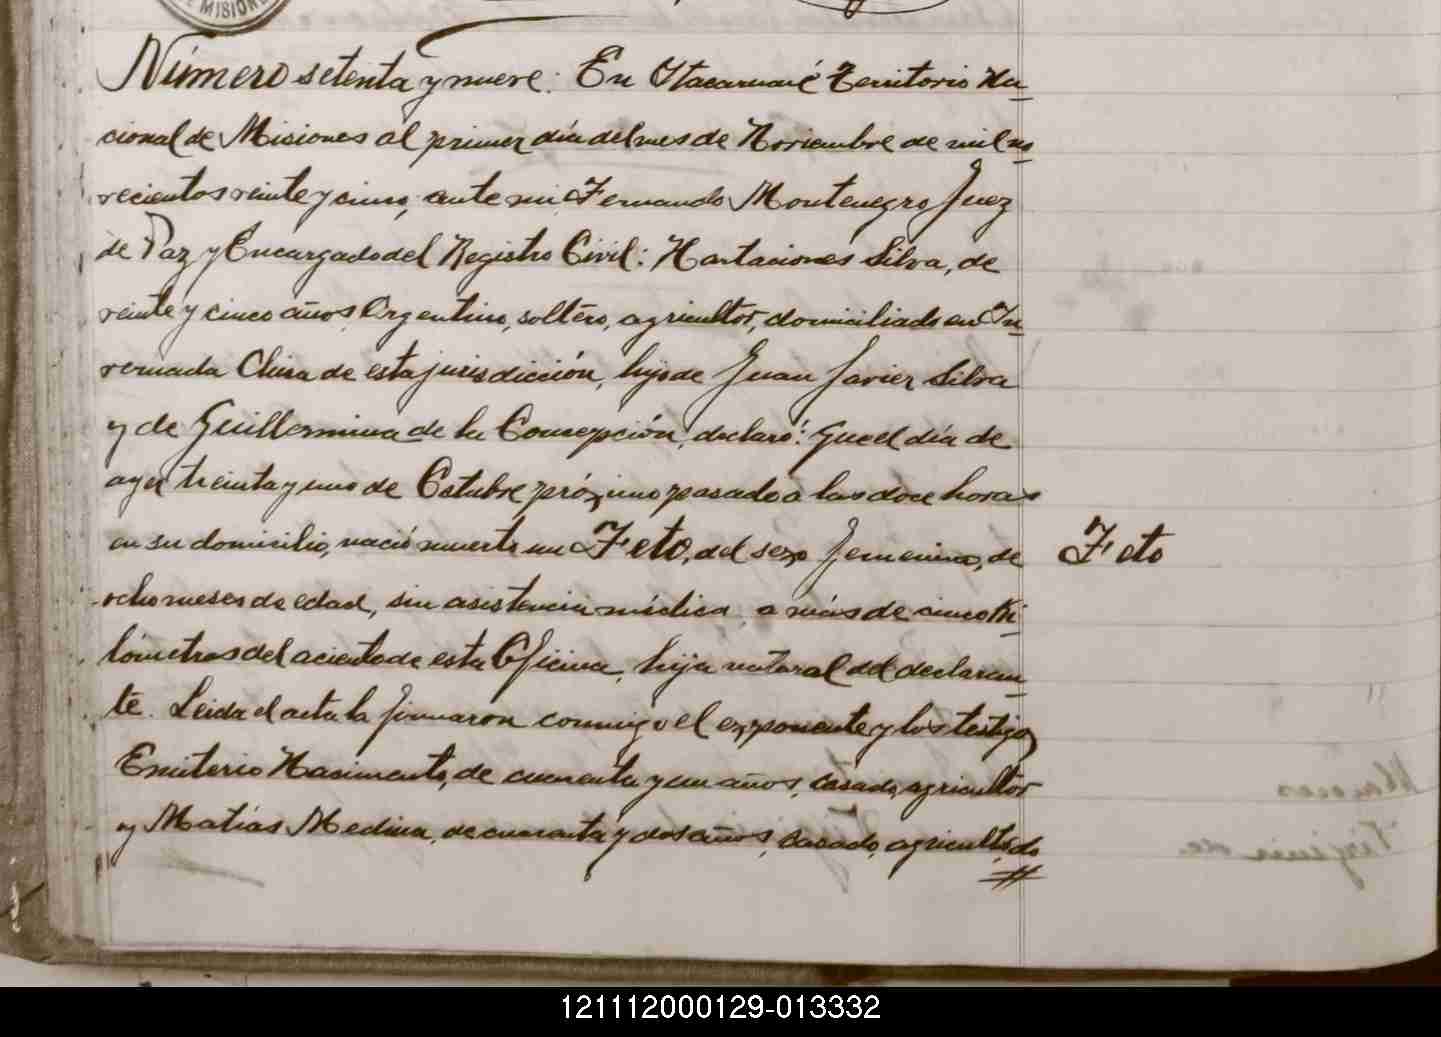 E MISIONE
Número setenta y nueve: En Itacaruaré Territorio Na_
cional de Misiones al primer día del mes de Noviembre de mil no_
vecientos veinte y cinco, ante mi Fernando Montenegro Juez
de Paz y Encargado del Registro Civil: Silva, de
veinte y cinco años, Argentino, soltero, agricultor, domiciliado en In_
vernada Chica de esta jurisdicción, hijo de Juan Javier Silva
y de Guillermina de la Concepción, declaró: Que el día de
ayer treinta y uno de Octubre próximo pasado a las doce horas
en su domicilio, nació muerto un Feto, del sexo femenino, de
ocho meses de edad, sin asistencia médica, a más de cinco Ki_
lómetros del aciento de esta Oficina, hija natural del declaran_
te. Leida el acta la firmaron conmigo el exponente y los testigos
Emiterio Nacimento, de cuarenta y un años, casado, agricultor
y Matías Medina, de cuarenta y dos años, casado, agricultor, do
Feto
121112000129-013332